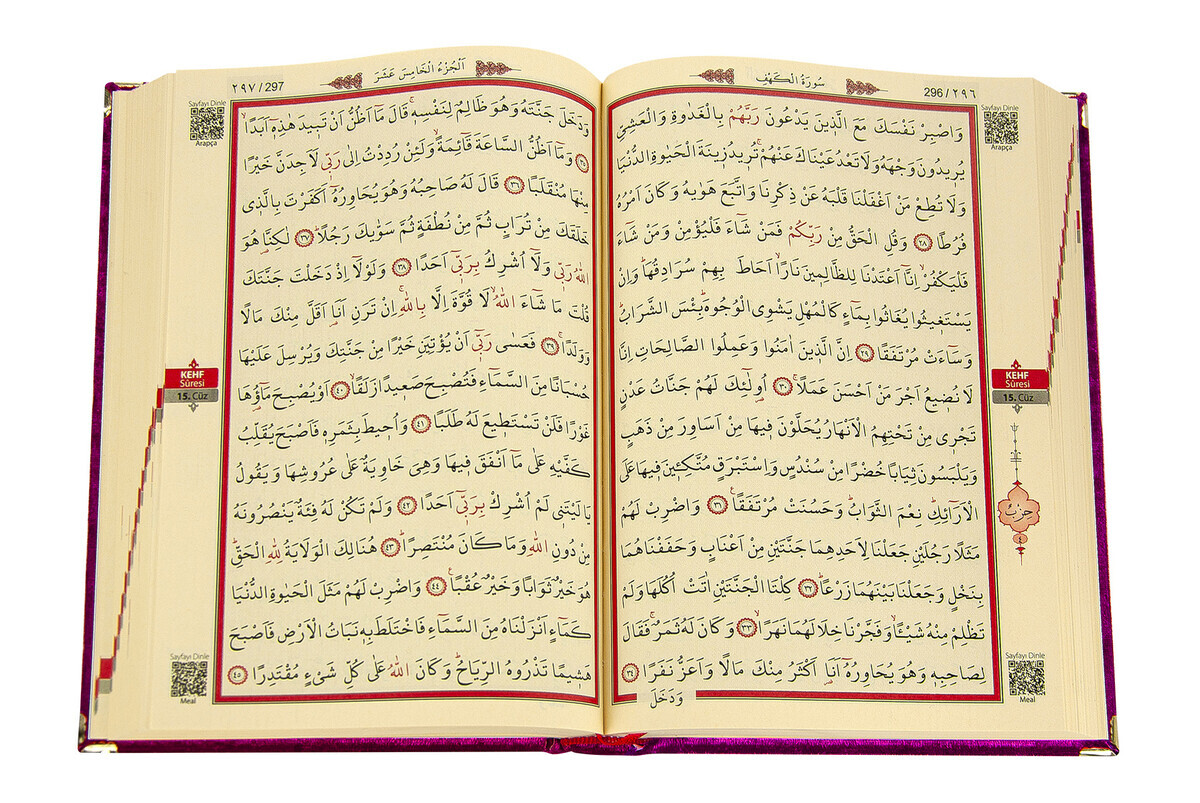 سُورَةُ الْكَهْفِ
296 / ٢٩٦
Sayfayı Dinle
Arapça
وَاصْبِرْ نَفْسَكَ مَعَ الَّذٖينَ يَدْعُونَ رَبَّهُمْ بِالْغَدٰوةِ وَالْعَشِيِّ
يُرٖيدُونَ وَجْهَهُ وَلَا تَعْدُ عَيْنَاكَ عَنْهُمْۚ تُرٖيدُ زٖينَةَ الْحَيٰوةِ الدُّنْيَا
وَلَا تُطِعْ مَنْ اَغْفَلْنَا قَلْبَهُ عَنْ ذِكْرِنَا وَاتَّبَعَ هَوٰيهُ وَكَانَ اَمْرُهُ
فُرُطًا ﴿٢٨﴾ وَقُلِ الْحَقُّ مِنْ رَبِّكُمْ فَمَنْ شَٓاءَ فَلْيُؤْمِنْ وَمَنْ شَٓاءَ
فَلْيَكْفُرْۙ اِنَّٓا اَعْتَدْنَا لِلظَّالِمٖينَ نَارًاۙ اَحَاطَ بِهِمْ سُرَادِقُهَاؕ وَاِنْ
يَسْتَغٖيثُوا يُغَاثُوا بِمَٓاءٍ كَالْمُهْلِ يَشْوِي الْوُجُوهَؕ بِئْسَ الشَّرَابُؕ
وَسَٓاءَتْ مُرْتَفَقًا ﴿٢٩﴾ اِنَّ الَّذٖينَ اٰمَنُوا وَعَمِلُوا الصَّالِحَاتِ اِنَّا
لَا نُضٖيعُ اَجْرَ مَنْ اَحْسَنَ عَمَلًاۚ ﴿٣٠﴾ اُولٰٓئِكَ لَهُمْ جَنَّاتُ عَدْنٍ
تَجْرٖي مِنْ تَحْتِهِمُ الْاَنْهَارُ يُحَلَّوْنَ فٖيهَا مِنْ اَسَاوِرَ مِنْ ذَهَبٍ
وَيَلْبَسُونَ ثِيَابًا خُضْرًا مِنْ سُنْدُسٍ وَاِسْتَبْرَقٍ مُتَّكِـٖٔينَ فٖيهَا عَلَى
الْاَرَٓائِكِؕ نِعْمَ الثَّوَابُؕ وَحَسُنَتْ مُرْتَفَقًا۟ ﴿٣١﴾ وَاضْرِبْ لَهُمْ
مَثَلًا رَجُلَيْنِ جَعَلْنَا لِاَحَدِهِمَا جَنَّتَيْنِ مِنْ اَعْنَابٍ وَحَفَفْنَاهُمَا
بِنَخْلٍ وَجَعَلْنَا بَيْنَهُمَا زَرْعًاؕ ﴿٣٢﴾ كِلْتَا الْجَنَّتَيْنِ اٰتَتْ اُكُلَهَا وَلَمْ
تَظْلِمْ مِنْهُ شَيْـًٔاۙ وَفَجَّرْنَا خِلَالَهُمَا نَهَرًاۙ ﴿٣٣﴾ وَكَانَ لَهُ ثَمَرٌۚ فَقَالَ
لِصَاحِبِهٖ وَهُوَ يُحَاوِرُهُٓ اَنَا۬ اَكْثَرُ مِنْكَ مَالًا وَاَعَزُّ نَفَرًا ﴿٣٤﴾
وَدَخَلَ
KEHF
Sûresi
15. Cüz
حِزْبٌ
٤
Sayfayı Dinle
Meal
اَلْجُزْءُ الْخَامِسَ عَشَرَ
٢٩٧ / 297
Sayfayı Dinle
Arapça
وَدَخَلَ جَنَّتَهُ وَهُوَ ظَالِمٌ لِنَفْسِهٖۚ قَالَ مَٓا اَظُنُّ اَنْ تَبٖيدَ هٰذِهٖٓ اَبَدًاۙ
﴿٣٥﴾ وَمَٓا اَظُنُّ السَّاعَةَ قَٓائِمَةًۙ وَلَئِنْ رُدِدْتُ اِلٰى رَبّٖي لَاَجِدَنَّ خَيْرًا
مِنْهَا مُنْقَلَبًا ﴿٣٦﴾ قَالَ لَهُ صَاحِبُهُ وَهُوَ يُحَاوِرُهُٓ اَكَفَرْتَ بِالَّذٖي
خَلَقَكَ مِنْ تُرَابٍ ثُمَّ مِنْ نُطْفَةٍ ثُمَّ سَوّٰيكَ رَجُلًاؕ ﴿٣٧﴾ لٰكِنَّا۬ هُوَ
اللّٰهُ رَبّٖي وَلَٓا اُشْرِكُ بِرَبّٖٓي اَحَدًا ﴿٣٨﴾ وَلَوْلَٓا اِذْ دَخَلْتَ جَنَّتَكَ
قُلْتَ مَا شَٓاءَ اللّٰهُۙ لَا قُوَّةَ اِلَّا بِاللّٰهِۚ اِنْ تَرَنِ اَنَا۬ اَقَلَّ مِنْكَ مَالًا
وَوَلَدًاۚ ﴿٣٩﴾ فَعَسٰى رَبّٖٓي اَنْ يُؤْتِيَنِ خَيْرًا مِنْ جَنَّتِكَ وَيُرْسِلَ عَلَيْهَا
حُسْبَانًا مِنَ السَّمَٓاءِ فَتُصْبِحَ صَعٖيدًا زَلَقًاۙ ﴿٤٠﴾ اَوْ يُصْبِحَ مَٓاؤُ۬هَا
غَوْرًا فَلَنْ تَسْتَطٖيعَ لَهُ طَلَبًا ﴿٤١﴾ وَاُحٖيطَ بِثَمَرِهٖ فَاَصْبَحَ يُقَلِّبُ
كَفَّيْهِ عَلٰى مَٓا اَنْفَقَ فٖيهَا وَهِيَ خَاوِيَةٌ عَلٰى عُرُوشِهَا وَيَقُولُ
يَا لَيْتَنٖي لَمْ اُشْرِكْ بِرَبّٖٓي اَحَدًا ﴿٤٢﴾ وَلَمْ تَكُنْ لَهُ فِئَةٌ يَنْصُرُونَهُ
مِنْ دُونِ اللّٰهِ وَمَا كَانَ مُنْتَصِرًاؕ ﴿٤٣﴾ هُنَالِكَ الْوَلَايَةُ لِلّٰهِ الْحَقِّؕ
هُوَ خَيْرٌ ثَوَابًا وَخَيْرٌ عُقْبًا۟ ﴿٤٤﴾ وَاضْرِبْ لَهُمْ مَثَلَ الْحَيٰوةِ الدُّنْيَا
كَمَٓاءٍ اَنْزَلْنَاهُ مِنَ السَّمَٓاءِ فَاخْتَلَطَ بِهٖ نَبَاتُ الْاَرْضِ فَاَصْبَحَ
هَشٖيمًا تَذْرُوهُ الرِّيَاحُؕ وَكَانَ اللّٰهُ عَلٰى كُلِّ شَيْءٍ مُقْتَدِرًا ﴿٤٥﴾
KEHF
Sûresi
15. Cüz
Sayfayı Dinle
Meal